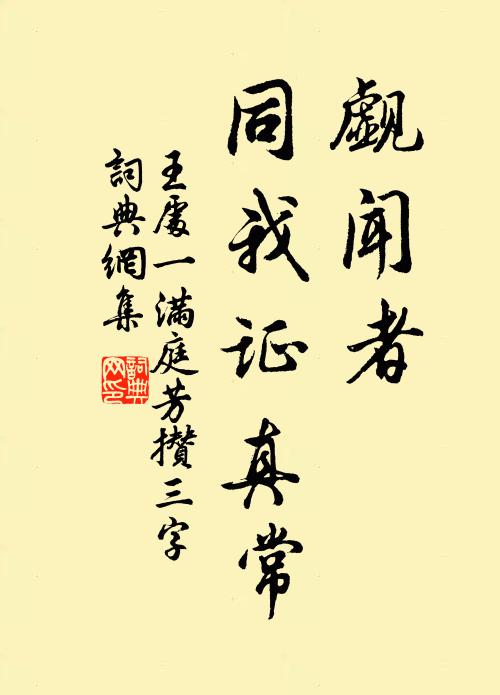 覷闻者
同我证真常
王處一满庭芳攅三字
詞典網集
詞典网印